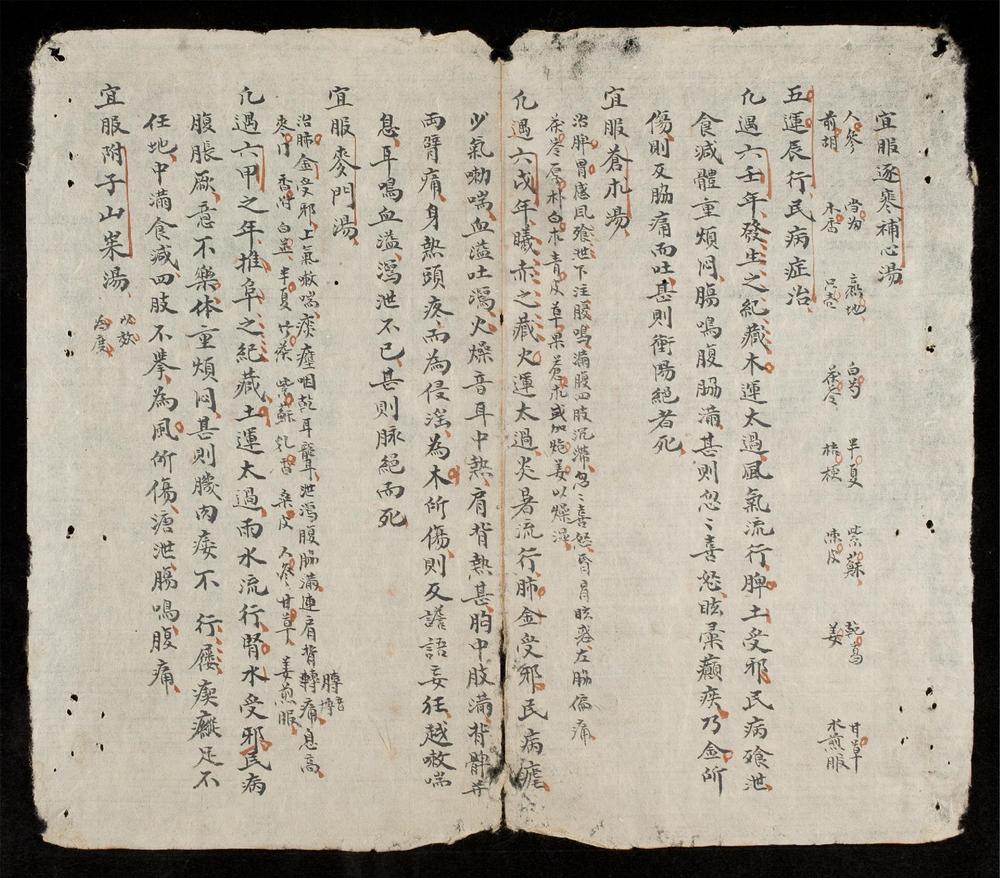 宜服逐寒補心湯
人參 當歸 熟地 白芍 半夏 紫蘇 乾葛 甘草
前胡 木香 只壳 茯苓 桔梗 陳皮 姜 水煎服
五運辰行民病症治
凢遇六壬年發生之紀歲木運太過風氣流行脾土受邪民病飱泄
食減體重煩悶膓鳴腹脇滿甚則忽〻喜怒眩暈癲疾乃金所
傷則反脇痛而吐甚則衝陽絕者死
宜服蒼朮湯
治脾胃感風飱泄下注腹鳴滿腹四肢沉滯忽〻喜怒昏冐眩暈左脇偏痛
茯苓厚朴白朮青皮草果蒼朮或加炮姜以燥濕
凢遇六戊年曦赤之歲火運太過炎暑流行肺金受邪民病瘧
少氣咳喘血溢吐瀉火燥音耳中熱肩背熱甚胸中肢滿背髀并
両臂痛身熱頭疼而為侵淫為木所傷則反譫語妄狂越咳喘
息耳鳴血溢瀉泄不已甚則脉絕而死
宜服麥門湯
治肺金受邪上氣咳喘痰壅咽乾耳聾泄瀉腹脇滿連肩背轉痛息高
麥門 香附 白芷 半夏 竹茹 紫蘇 乳香 桑皮 人參 甘草 姜煎服
凢遇六甲之年推阜之紀歲土運太過雨水流行腎水受邪民病
腹脹厥意不樂体重煩悶甚則𦜕肉痿不行屨瘈瘲足不
任地中滿食減四肢不舉為風所傷溏泄膓鳴腹痛
宜服附子山茱湯 以效為度